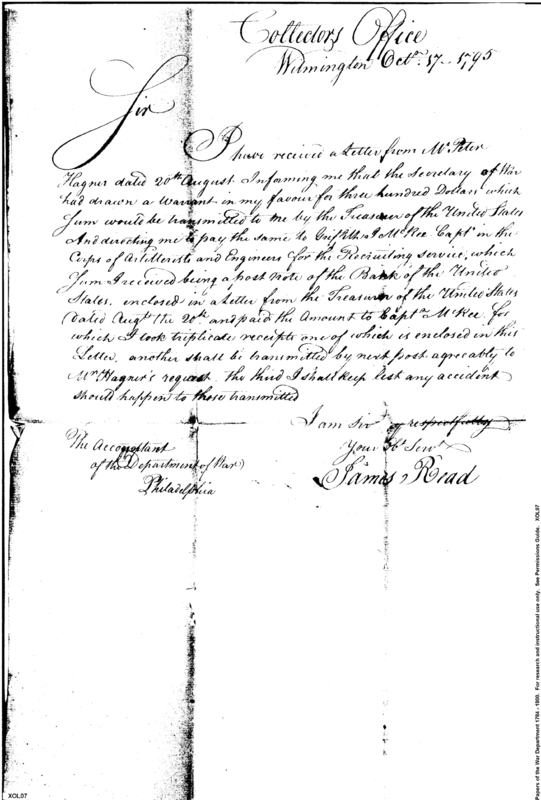 Collectors Office
Wilmington Octr. 17 - 1795
Sir
I have received a Letter from Mr Peter
Hagner dated 20th August Informing me that the Secretary of War
had drawn a Warrant in my favour for three hundred Dollars which
Sum would be transmitted to me by the Treasurer of the United States
And directing me to pay the same to Griffith J McRee Captn in the
Corps of Artillerists and Engineers for the Recruiting service, which
Sum I received being a post note of the Bank of the United
States, enclosed in a Letter from the Treasurer of the United States
dated Augt the 20th and paid the Amount to Captn McRee for
which I took triplicate receipts one of which is enclosed in this
Letter, another shall be transmitted by next post agreeably to
Mr Hagner's request the third I shall keep lest any accident
should happen to those transmitted
I am Sir respectfully
Your Ob. Servt
James Read
The Accountant
of the Department of War
Philadelphia
XOL07
Papers of the War Department 1784 - 1800. For research and instructional use only. See Permissions Guide. XOL07